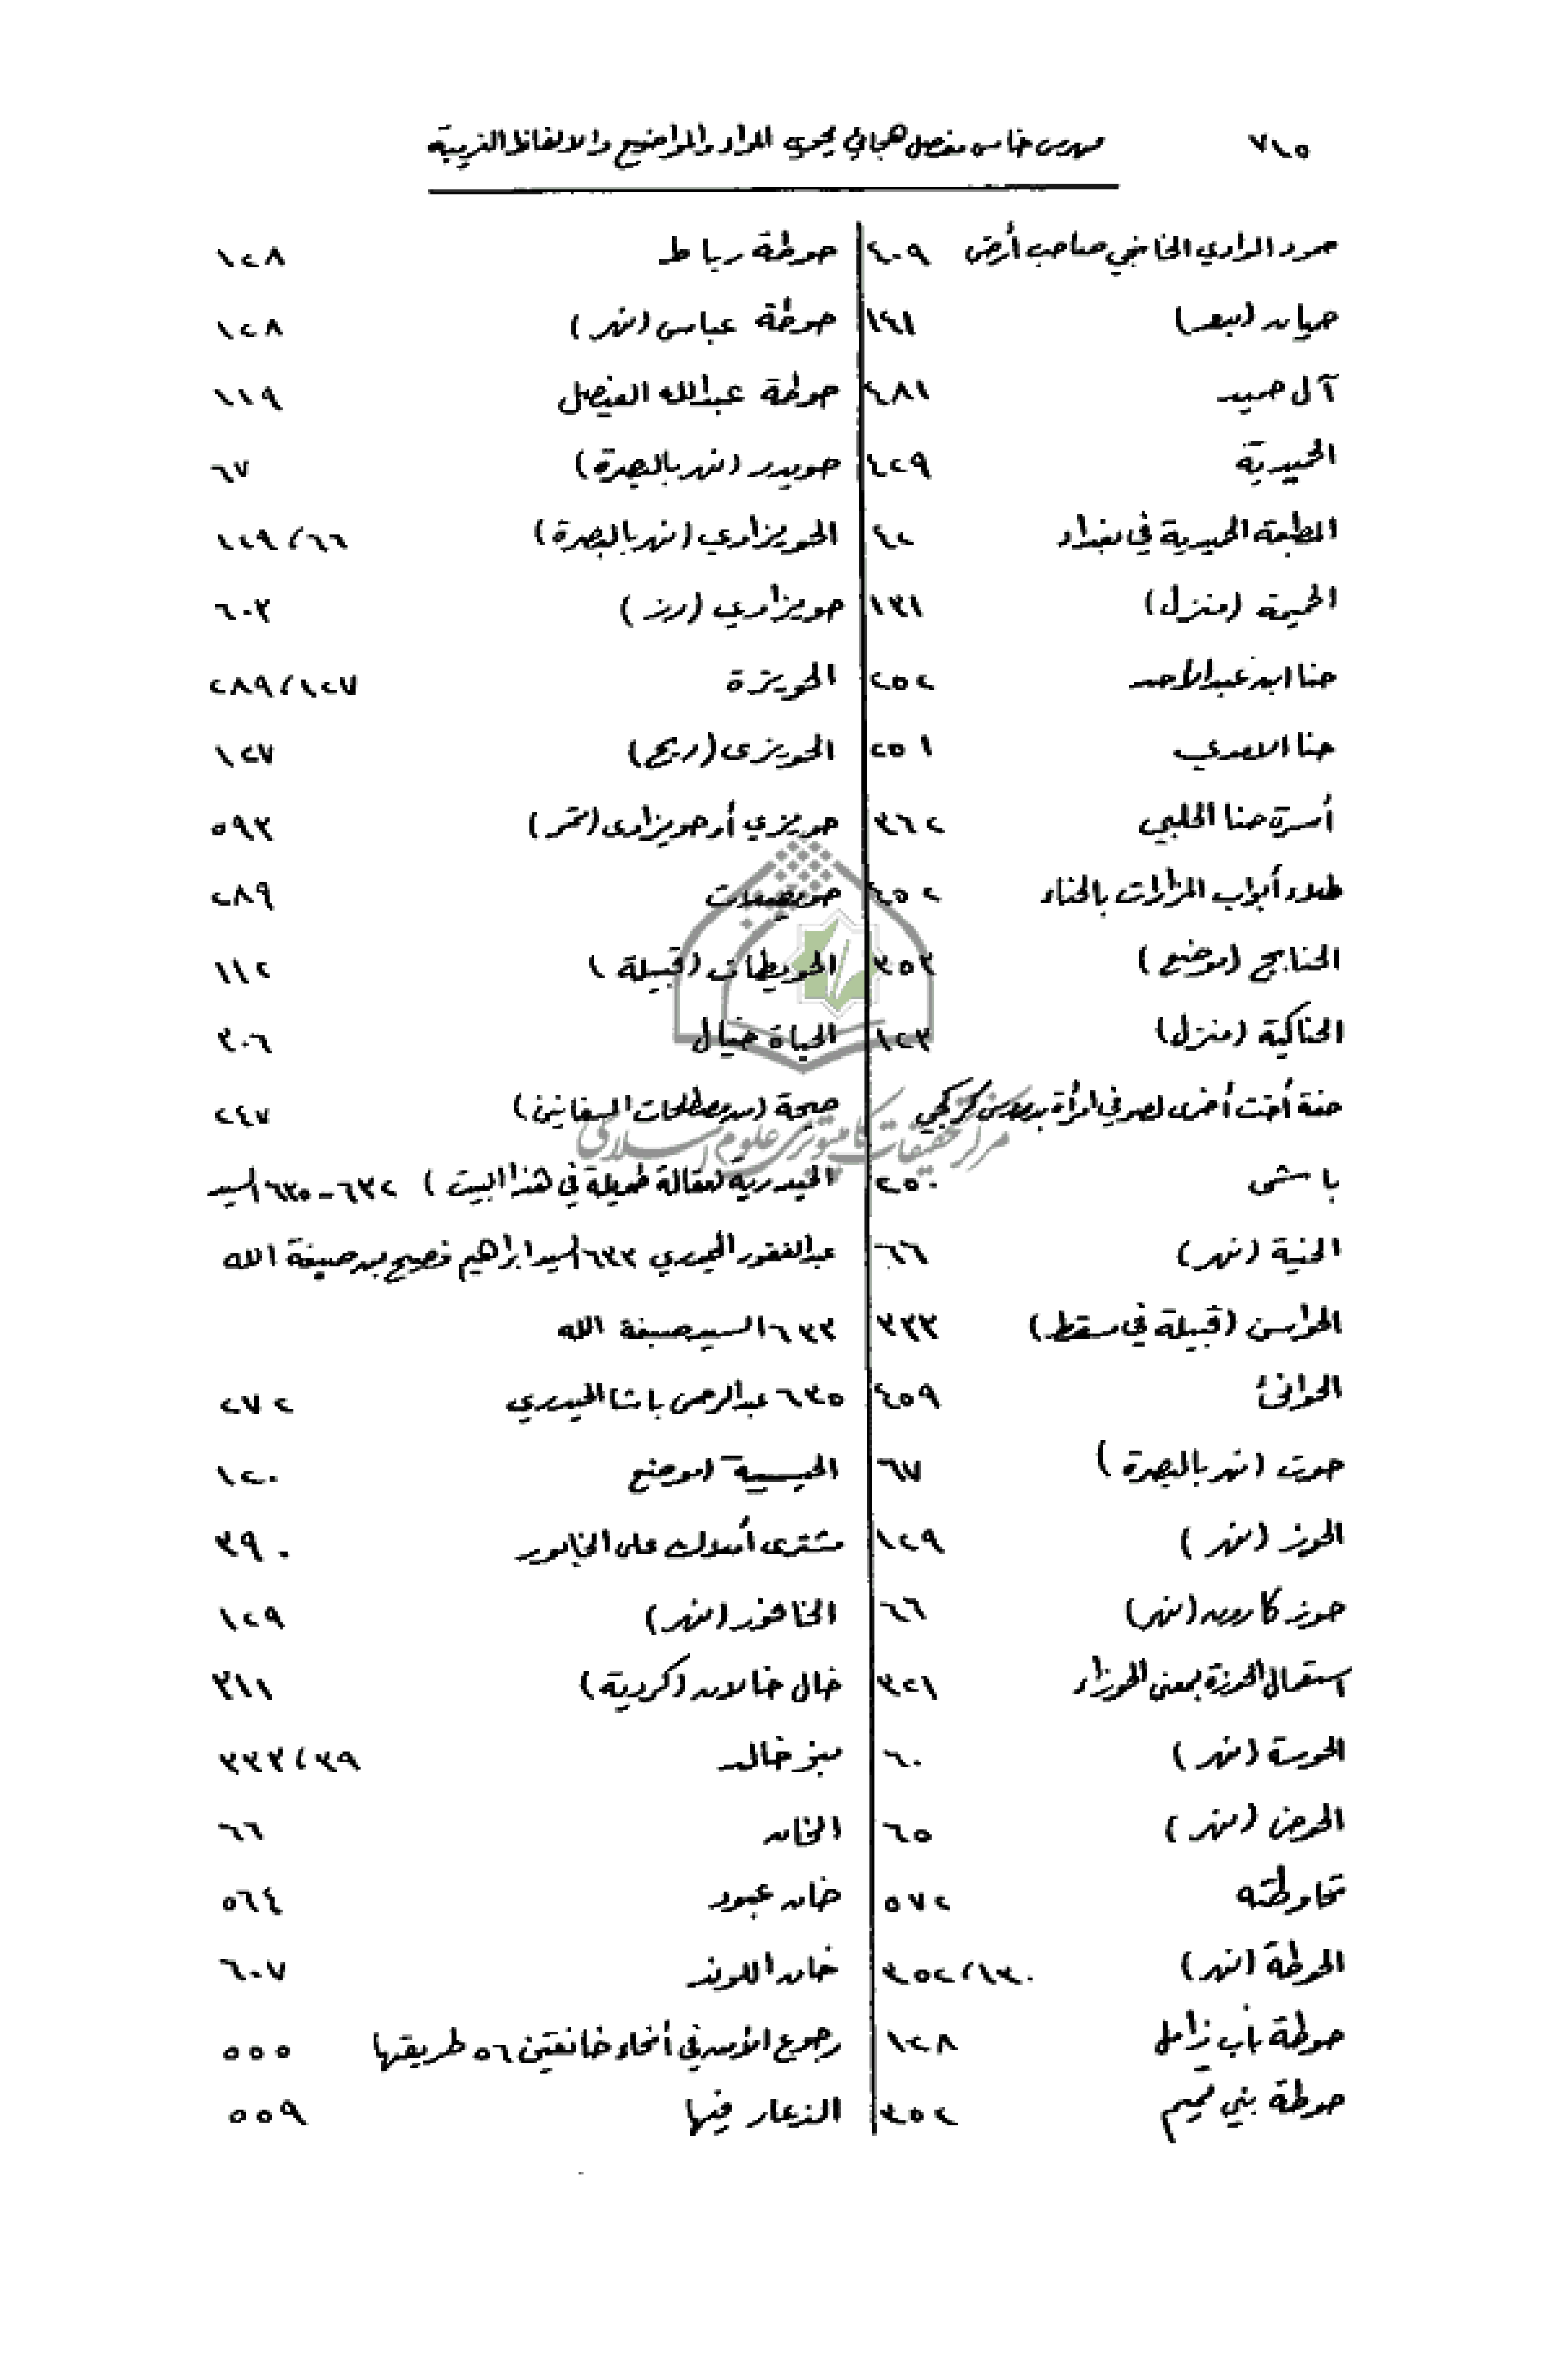 ٧١٥ فهرس خاص مفصل هجائي يحوي المواد والمواضيع والالفاظ الغريبة
حمود الوادي الخانجي صاحب أرض ٤٠٩
حيان (بيعر) ١٩١
آل حميد ٤٨١
الحميدية ٤٢٩
المطبعة الحميدية في بغداد ٤٢
الحميمة (منزل) ١٣١
حنا ابن عبد الأحد ٢٥٢
حنا الاسدي ٢٥١
أسرة حنا الحلبي ٣٦٢
طلاء أبواب المزارات بالحناء ٤٥٢
الحنابج (موضع) ٣٥٣
الحناكية (منزل) ١٢٣
حنة أخت أخرى لصوفي امرأة
باشي ٢٥٠
الحنية (نهر) ٦٦
الحواسن (قبيلة في مسقط) ٣٣٣
الحوانئ ٤٥٩
حوت (نهر بالبصرة) ٦٧
الحوز (نهر) ١٢٩
حوز كارون (نهر) ٦٦
استعمال الحوزة بمعنى الحوزاء ٣٢١
الحوسة (نهر) ٦٠
الحوض (نهر) ٦٥
تحاوطته ٥٧٢
الحوطة (نهر) ١٣٠/٣٥٢
حوطة باب زامل ١٢٨
حوطة بني تميم ٣٥٢
حوطة رباط ١٢٨
حوطة عباس (نهر) ١٢٨
حوطة عبدالله الفيصل ١١٩
حويدر (نهر بالبصرة) ٦٧
الحويزاوي (نهر بالبصرة) ٦٦/١٢٩
حويزاوي (رز) ٦٠٣
الحويزة ١٢٧/٢٨٩
الحويزى (ريح) ١٢٧
حويزي أو حويزاوى (تمر) ٥٩٣
حويصلات ٢٨٩
الحويطات (قبيلة) ١١٢
الحياة خيال ٣٠٦
صيحة (من مصطلحات السفانين) ٢٤٧
الحيدرية (مقالة طويلة في هذا البيت) ٦٣٢-٦٣٥ السيد
عبدالغفور الحيدري ٦٣٣ السيد ابراهيم فصيح بن صبغة الله
٦٣٣ السيد صبغة الله
٦٣٥ عبدالرحمن باشا الحيدري ٢٧٢
الحيسية (موضع ١٢٠
مشترى أملاك على الخابور ٣٩٠
الخاخور (نهر) ١٢٩
خال خالان (كردية) ٣١١
ميز خالد ٣٩/٣٣٣
الخان ٦٦
خان عبود ٥٦٤
خان اللوند ٦٠٧
رجوع الأمن في أنحاء خانقين ٥٦ طريقها ٥٥٥
الزعار فيها ٥٥٩
مركز تحقيقات كامپيوتری علوم اسلامی